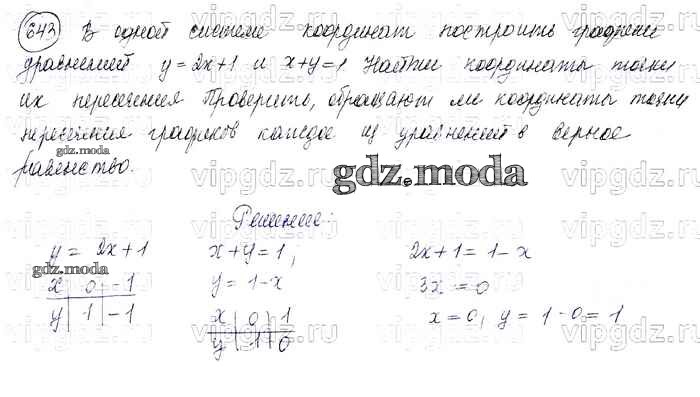 643 В одной системе координат построить графики
уравнений y = 2x+1 и x+y=1 Найти координаты точки
их пересечения Проверить, обращают ли координаты точки
пересечения графиков каждое из уравнений в верное
равенство.
gdz.moda
gdz.moda
Решение:
y = 2x+1 x+y=1, 2x+1=1-x
gdz.moda
x | 0 | -1 y = 1-x 3x = 0
y | 1 | -1 x | 0 | 1 x=0, y = 1-0=1
y | 1 | 0
vipgdz.ru